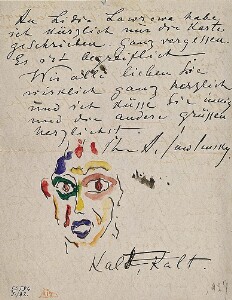 An Lidia Lawrewa habe
ich kürzlich nur die Karte
geschrieben. ganz vergessen.
Es ist begreiflich
Wir alle lieben Sie
wirklich ganz herzlich
und ich küsse Sie innig
und die andere grüssen
herzlichst.
Ihr A. Jawlensky.
Kalt, Kalt.